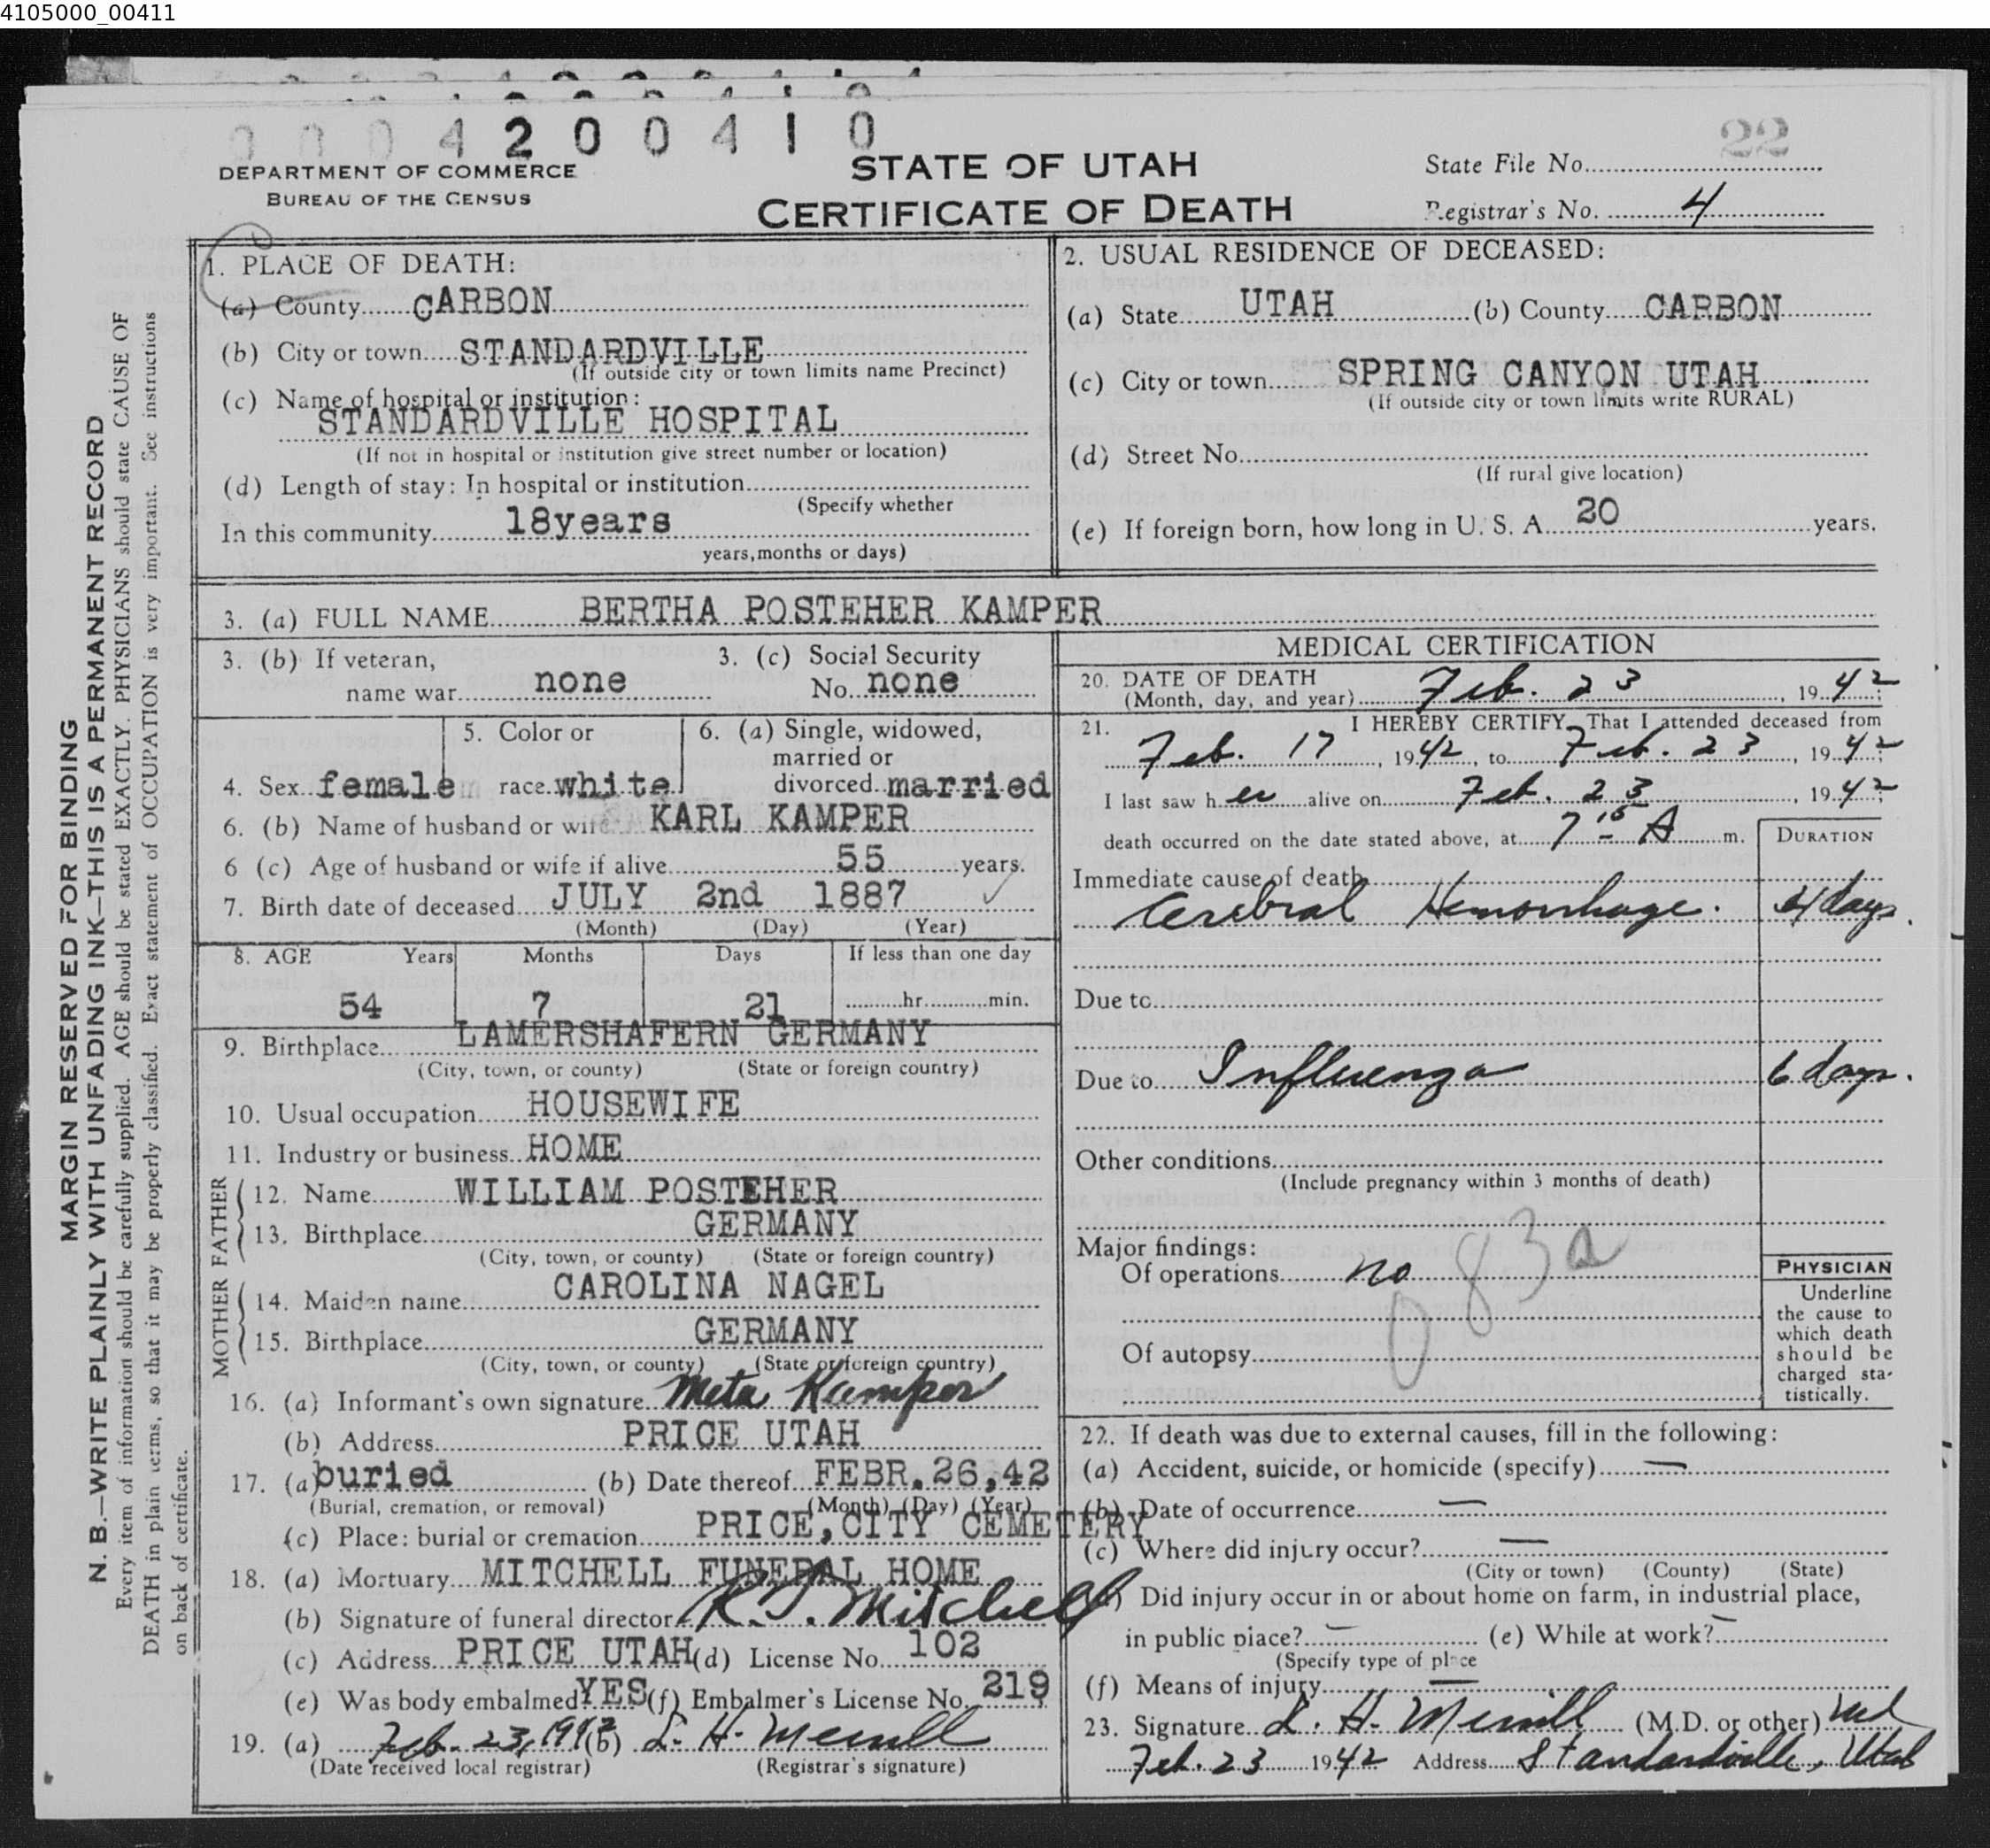 4105000_00411
0004200410
22
DEPARTMENT OF COMMERCE
BUREAU OF THE CENSUS
STATE OF UTAH
CERTIFICATE OF DEATH
State File No.
Registrar's No. 4
MARGIN RESERVED FOR BINDING
N. B.—WRITE PLAINLY WITH UNFADING INK—THIS IS A PERMANENT RECORD
Every item of information should be carefully supplied. AGE should be stated EXACTLY. PHYSICIANS should state CAUSE OF
DEATH in plain terms, so that it may be properly classified. Exact statement of OCCUPATION is very important. See instructions
on back of certificate.
1. PLACE OF DEATH:
(a) County CARBON
(b) City or town STANDARDVILLE
(If outside city or town limits name Precinct)
(c) Name of hospital or institution:
STANDARDVILLE HOSPITAL
(If not in hospital or institution give street number or location)
(d) Length of stay: In hospital or institution
(Specify whether
In this community 18years
years, months or days)
2. USUAL RESIDENCE OF DECEASED:
(a) State UTAH (b) County CARBON
(c) City or town SPRING CANYON UTAH
(If outside city or town limits write RURAL)
(d) Street No.
(If rural give location)
(e) If foreign born, how long in U. S. A. 20 years.
3. (a) FULL NAME BERTHA POSTEHER KAMPER
3. (b) If veteran,
name war none
3. (c) Social Security
No. none
4. Sex female
5. Color or
race white
6. (a) Single, widowed,
married or
divorced married
6. (b) Name of husband or wife KARL KAMPER
6 (c) Age of husband or wife if alive 55 years.
7. Birth date of deceased JULY 2nd 1887
(Month) (Day) (Year)
8. AGE Years Months Days If less than one day
54 7 21 hr. min.
9. Birthplace LAMERSHAFERN GERMANY
(City, town, or county) (State or foreign country)
10. Usual occupation HOUSEWIFE
11. Industry or business HOME
FATHER
12. Name WILLIAM POSTEHER
13. Birthplace GERMANY
(City, town, or county) (State or foreign country)
MOTHER
14. Maiden name CAROLINA NAGEL
15. Birthplace GERMANY
(City, town, or county) (State or foreign country)
16. (a) Informant's own signature Meta Kamper
(b) Address PRICE UTAH
17. (a) buried (b) Date thereof FEBR.26,42
(Burial, cremation, or removal) (Month) (Day) (Year)
(c) Place: burial or cremation PRICE,CITY CEMETERY
18. (a) Mortuary MITCHELL FUNERAL HOME
(b) Signature of funeral director R. J. Mitchell
(c) Address PRICE UTAH (d) License No. 102
(e) Was body embalmed YES (f) Embalmer's License No. 219
19. (a) Feb. 23, 1942 (b) L. H. Merrill
(Date received local registrar) (Registrar's signature)
MEDICAL CERTIFICATION
20. DATE OF DEATH
(Month, day, and year) Feb. 23, 1942;
21. I HEREBY CERTIFY, That I attended deceased from
Feb. 17, 1942, to Feb. 23, 1942;
I last saw her alive on Feb. 23, 1942;
death occurred on the date stated above, at 7 15 A m.
DURATION
Immediate cause of death
Cerebral Hemorrhage. 4 days.
Due to
Due to Influenza 6 days.
Other conditions
(Include pregnancy within 3 months of death)
Major findings:
Of operations no
083a
Of autopsy
PHYSICIAN
Underline
the cause to
which death
should be
charged sta-
tistically.
22. If death was due to external causes, fill in the following:
(a) Accident, suicide, or homicide (specify) —
(b) Date of occurrence —
(c) Where did injury occur? —
(City or town) (County) (State)
(d) Did injury occur in or about home on farm, in industrial place,
in public place? — (e) While at work? —
(Specify type of place
(f) Means of injury —
23. Signature L. H. Merrill (M.D. or other) Md
Feb. 23 1942 Address Standardville, Utah